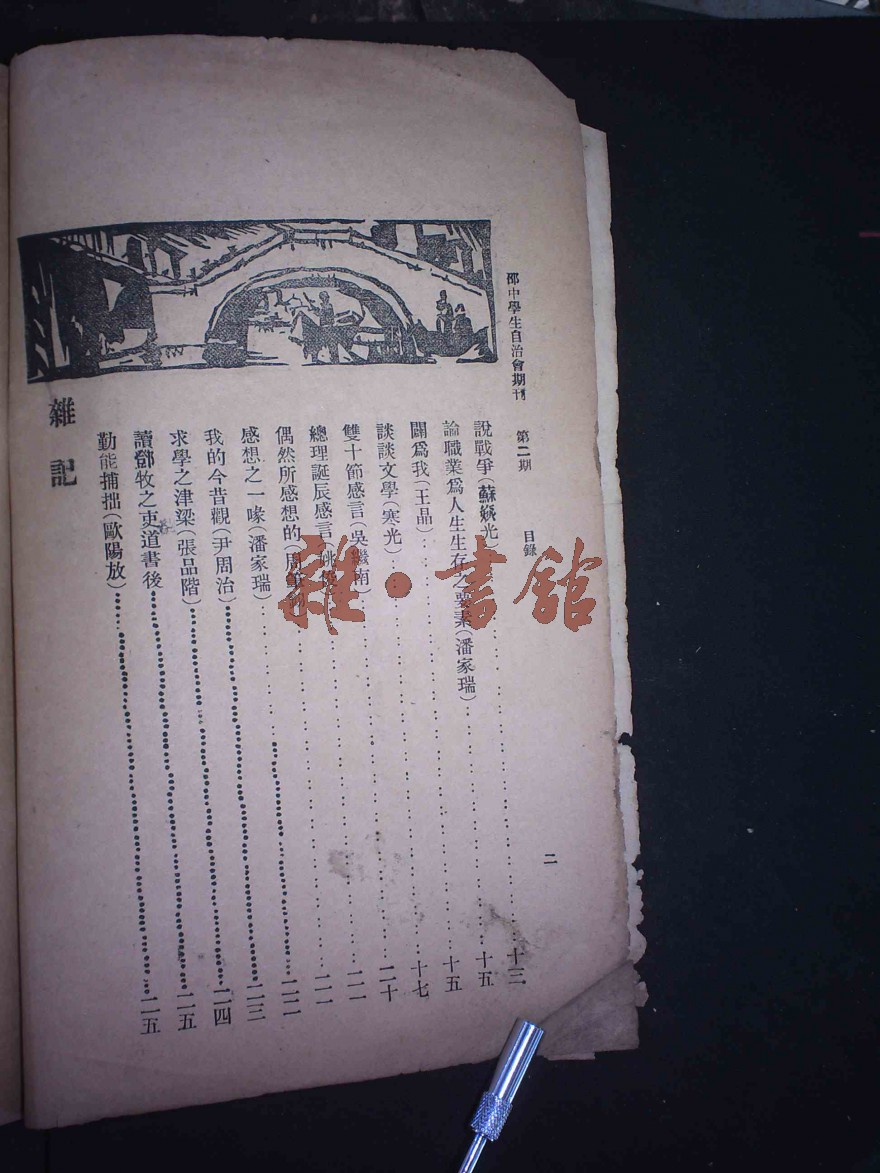 邵中學生自治會期刊 第二期 目錄 二
說戰爭(蘇 光 十三
論職業爲人生生存之要素(潘家瑞) 十五
闢爲我(王晶) 十五
談談文學(寒光) 十七
雙十節感言(吳繼南) 二十
總理誕辰感言(姚 二一
偶然所感想的(周 二一
感想之一喙(潘家瑞) 二二
我的今昔觀(尹周治) 二三
求學之津梁(張品階) 二四
讀鄧牧之吏道書後 二五
勤能捕拙(歐陽放) 二五
雜記
雜·書館